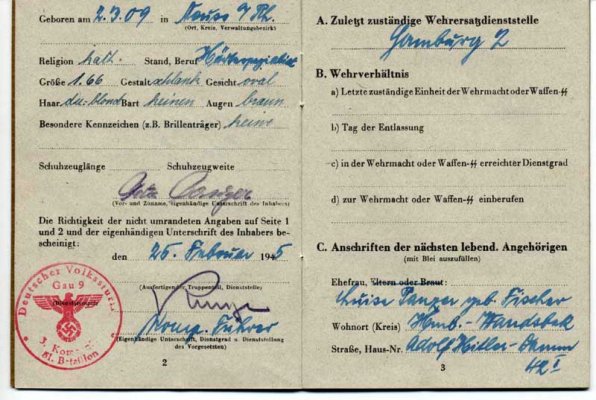 Geboren am 2.3.09 in Neuss a/Rh.
(Ort, Kreis, Verwaltungsbezirk)
Religion kath. Stand, Beruf
Größe 1.66 Gestalt schlank Gesicht oval
Haar du.blond Bart keinen Augen braun
Besondere Kennzeichen (z.B. Brillenträger) keine
Schuhzeuglänge Schuhzeugweite
(Vor- und Zuname, eigenhändige Unterschrift des Inhabers)
Die Richtigkeit der nicht umrandeten Angaben auf Seite 1
und 2 und der eigenhändigen Unterschrift des Inhabers be-
scheinigt:
den 25. Februar 1945
(Ausfertigender Truppenteil, Dienststelle)
Komp. Führer
(Eigenhändige Unterschrift, Dienstgrad u. Dienststellung
des Vorgesetzten)
Deutscher Volkssturm
Gau 9
(Dienststempel)
3. Komp.
Bataillon
2
A. Zuletzt zuständige Wehrersatzdienststelle
Hamburg 2
B. Wehrverhältnis
a) Letzte zuständige Einheit der Wehrmacht oder Waffen-SS
b) Tag der Entlassung
c) in der Wehrmacht oder Waffen-SS erreichter Dienstgrad
d) zur Wehrmacht oder Waffen-SS einberufen
C. Anschriften der nächsten lebend. Angehörigen
(mit Blei auszufüllen)
Ehefrau, Eltern oder Braut:
Luise Panzer geb. Fischer
Wohnort (Kreis) Hmb.-Wandsbek
Straße, Haus-Nr. Adolf Hitler-Damm
42 I
3